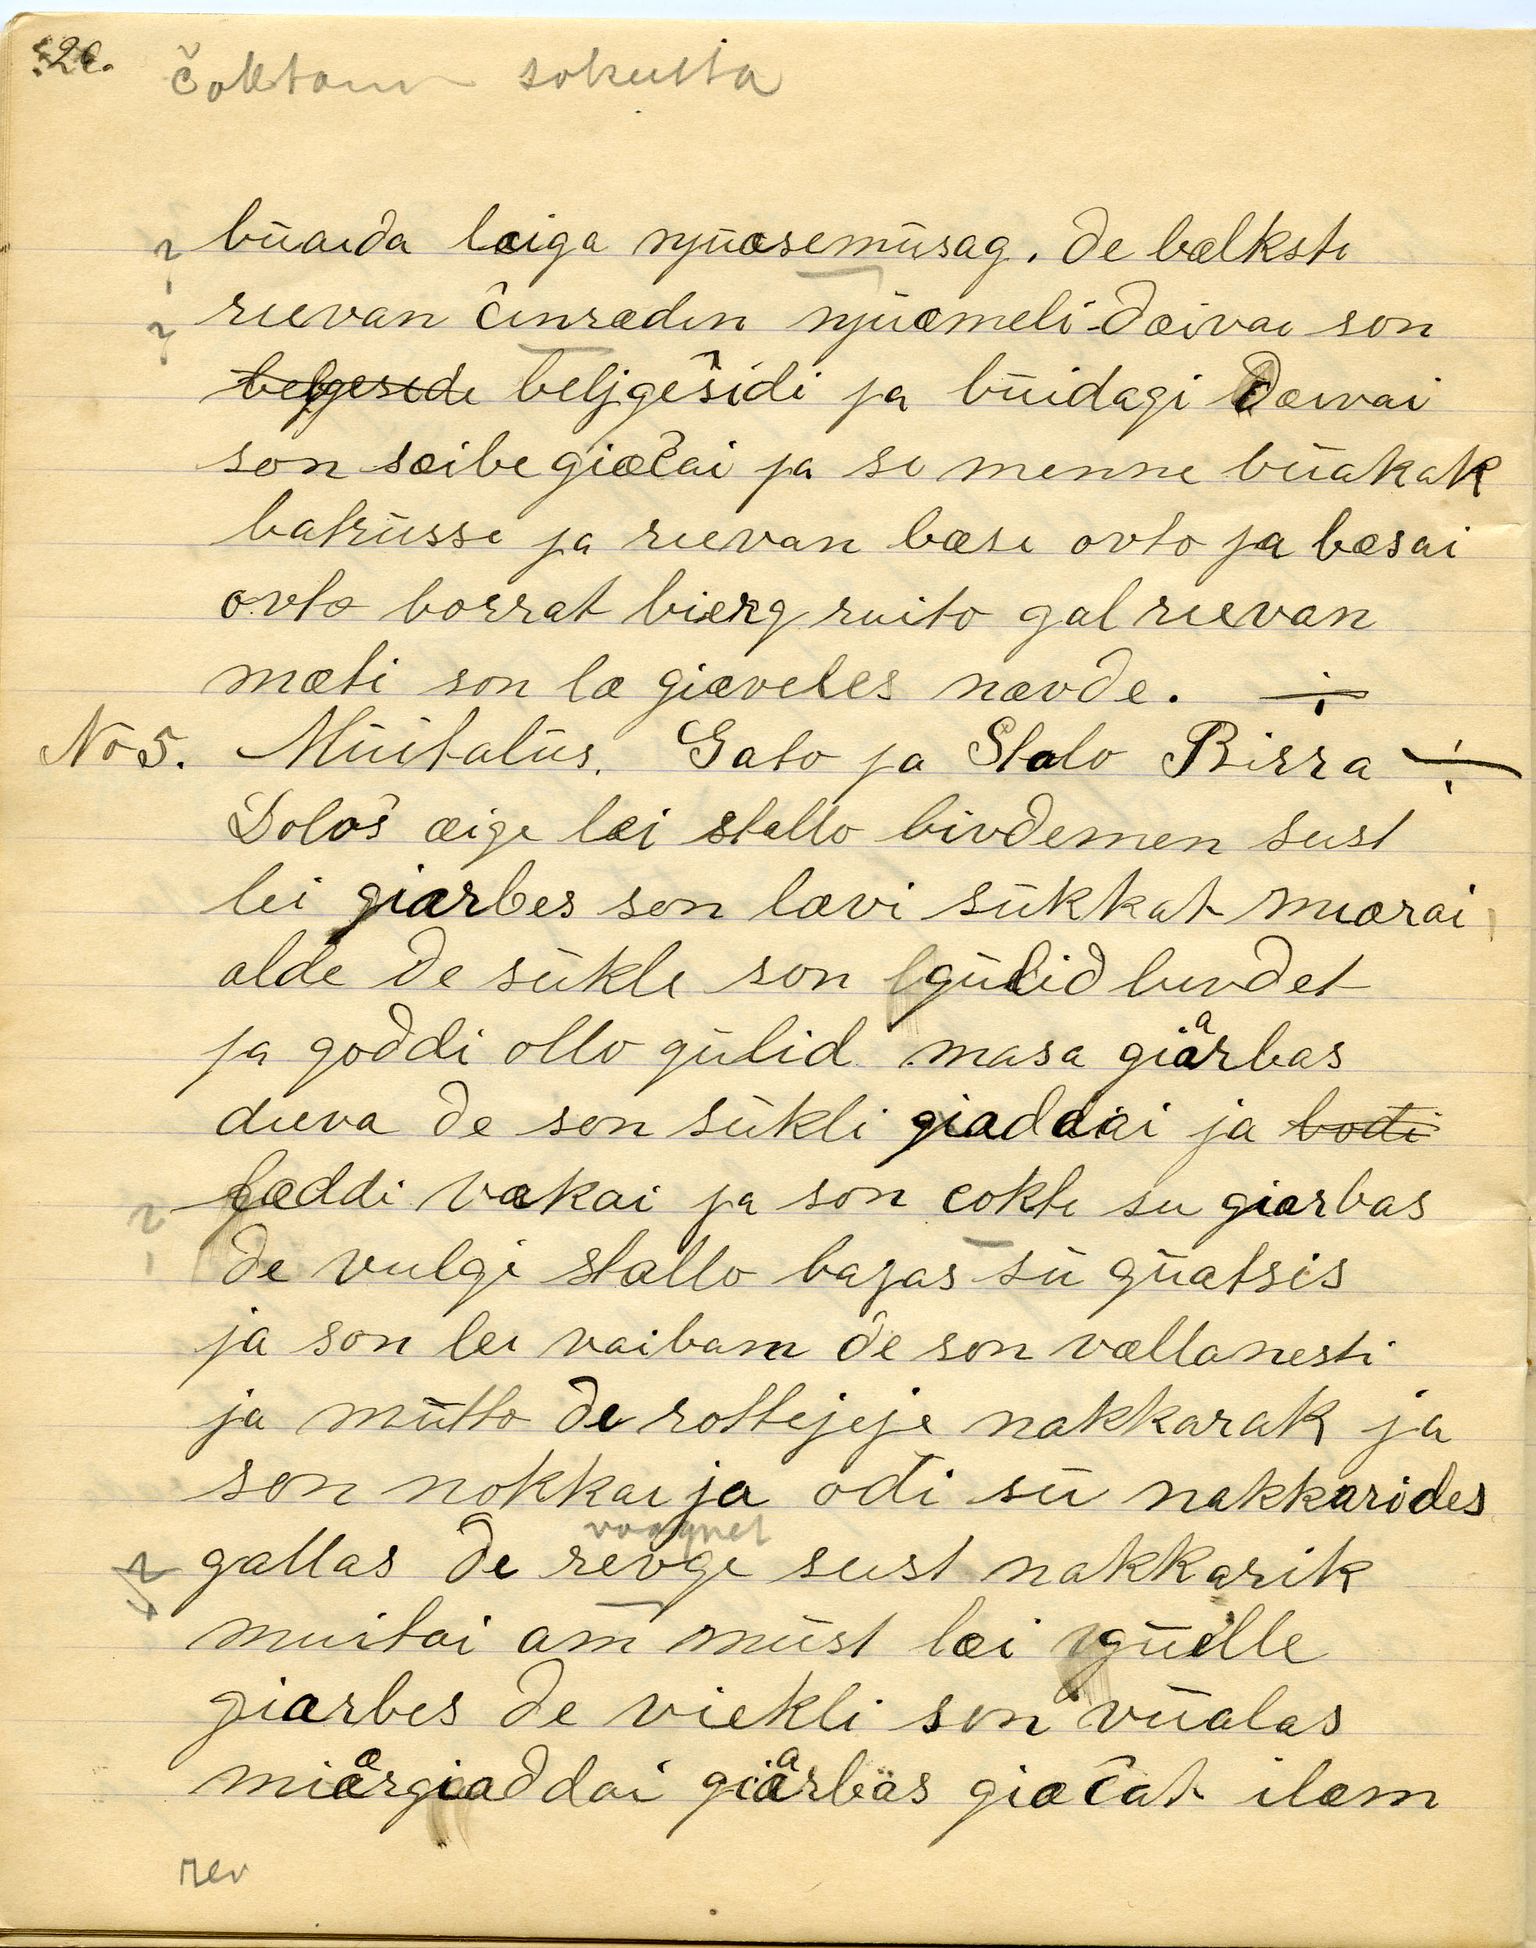 20.
čoktom sokulta
büaida læiga njüæsemüsag. de bælkste
rievan činrædin njüæmeli dæivai son
belgesede beljgešidi ja büidagi dæivai
son sæibe giæčai ja se menne büakak
batrüsse ja rievan bæse ovto ja bæsai
ovto borrat bierg ruito gal rievan
mæti son læ giæveles nævde. ÷
No 5. Müitalüs. Gato ja Stalo Birra ÷
Dološ æige læi stallo bivdemen sust
lei giærbes son lævi sükkat miærai
alde de sükle son gülid bivdet
ja goddi ollo gülid masa giärbas
dieva de son sükli giaddai ja bođi
fæddi vækai ja son cokte su giærbas
de vulgi stallo bajas sü güatsis
ja son lei vaibam de son vællanesti
ja mütto de rottejeje nakkarak ja
son nokkai ja ođi sü nakkarides
voagnet
gallas de revge sust nakkarik
muitai am müst læi güelle
giærbes de viekli son vüalas
miærgiaddai giärbäs giæčat ilæm
rev